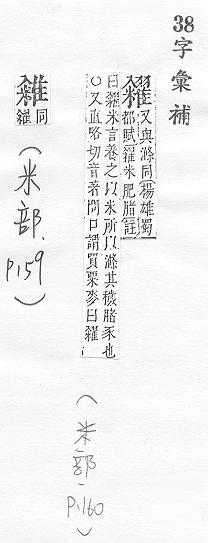 38 字彙補
糴 又與滌同楊雄蜀
都賦糴米肥腯註
曰糴米言養之以米所以滌其穢腯豕也
○又直略切音著問口謂買粟麥曰糴
(米部、P.160)
同糴
(米部、P.159)